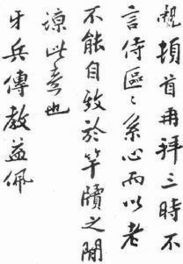 觌頓首再拜三時不
言侍區〻系心而以老
不能自效於竿牘之間
諒此意也
牙兵傳教益佩